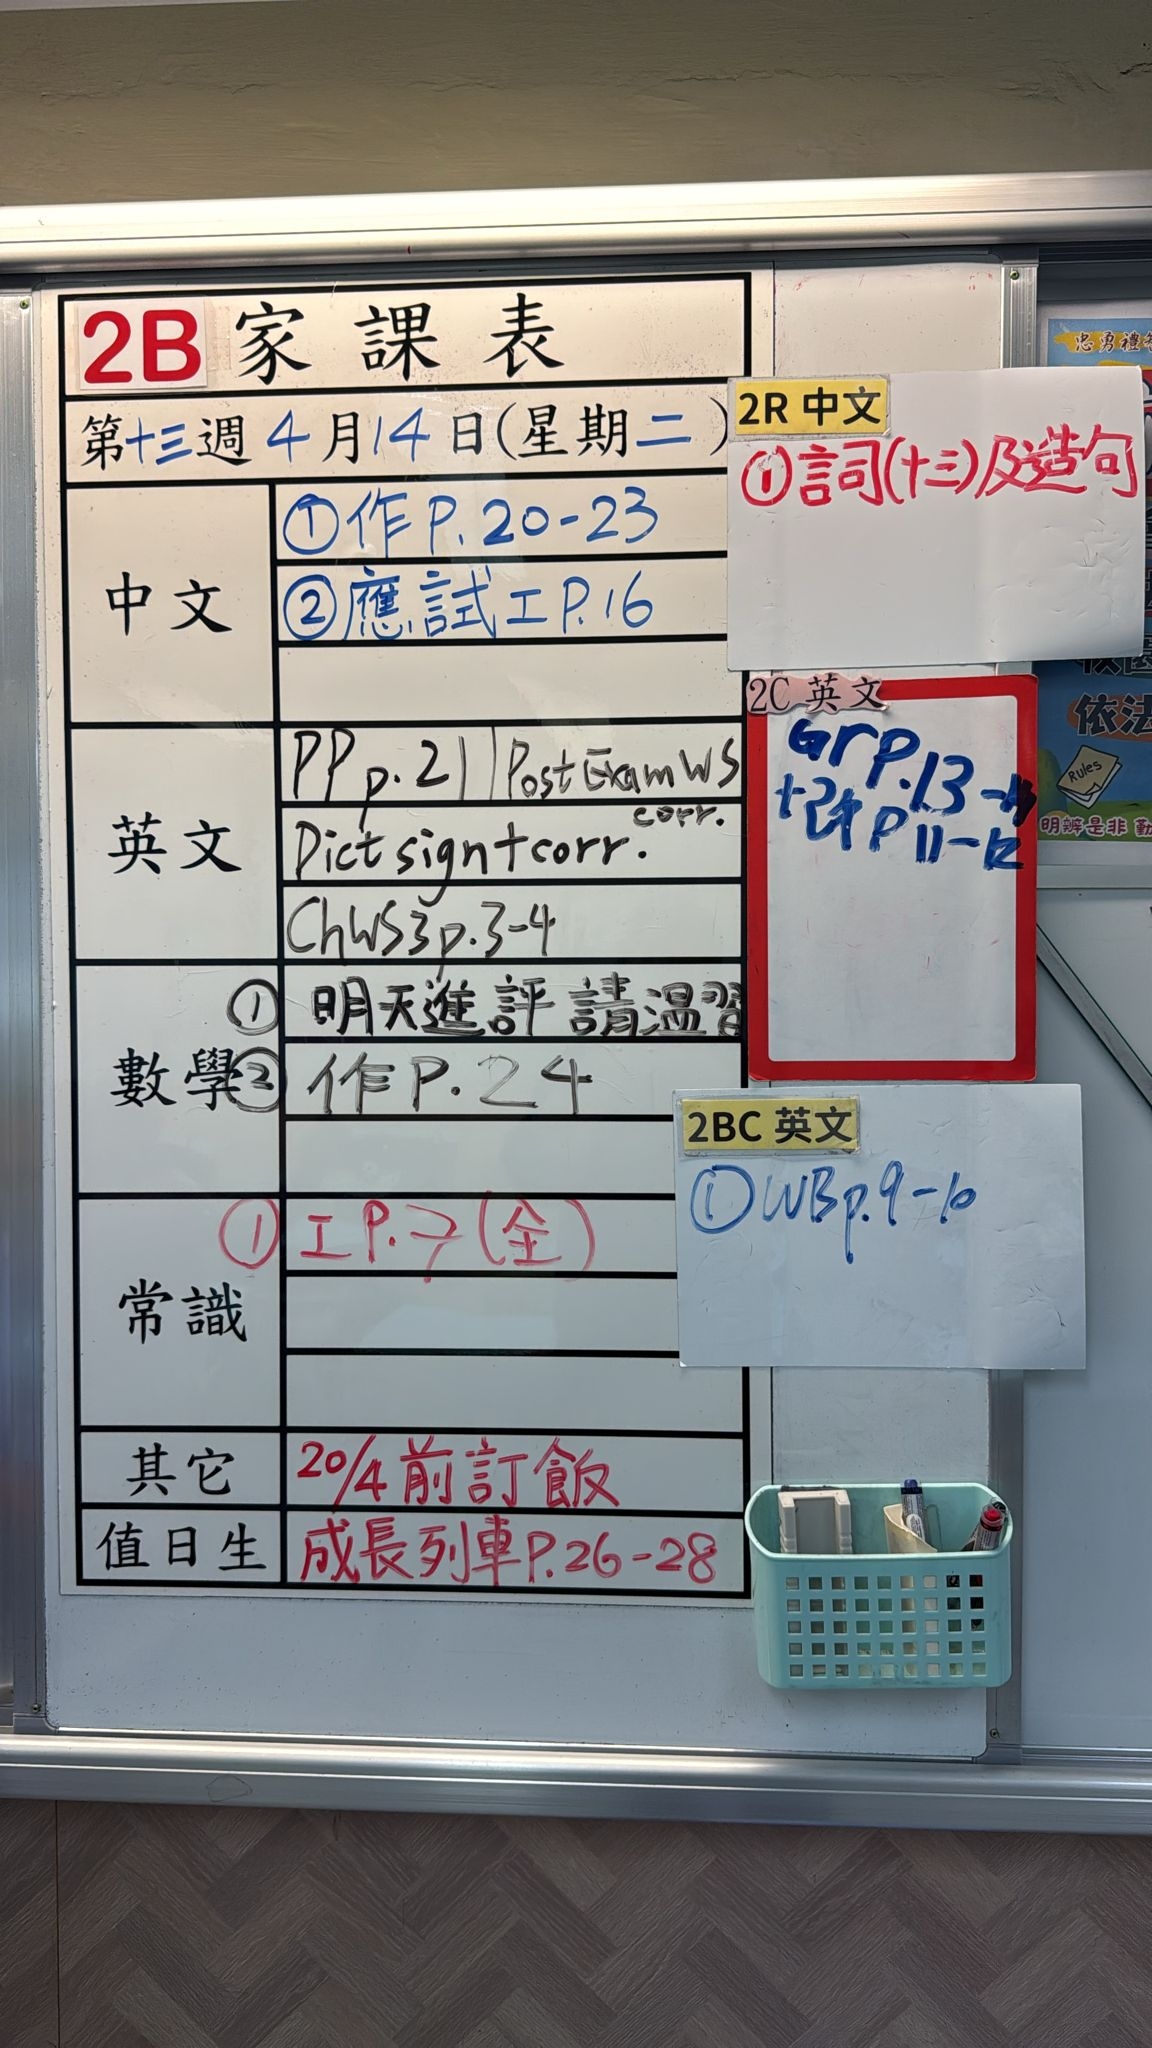 2B 家課表
第十三週 4月14日(星期二)
中文
①作P.20-23
②應試工P.16
英文
PP p.21 | Post Exam WS corr.
Dict sign + corr.
ChWS3 p.3-4
數學
① 明天進評請溫習
② 作P.24
常識
① 工P.7(全)
其它
20/4前訂飯
值日生
成長列車P.26-28
2R 中文
①詞(十三)及造句
2C 英文
Gr P.13-
P 11-12
2BC 英文
①WB p.9-10
忠勇禮
依法
Rules
明辨是非 勤